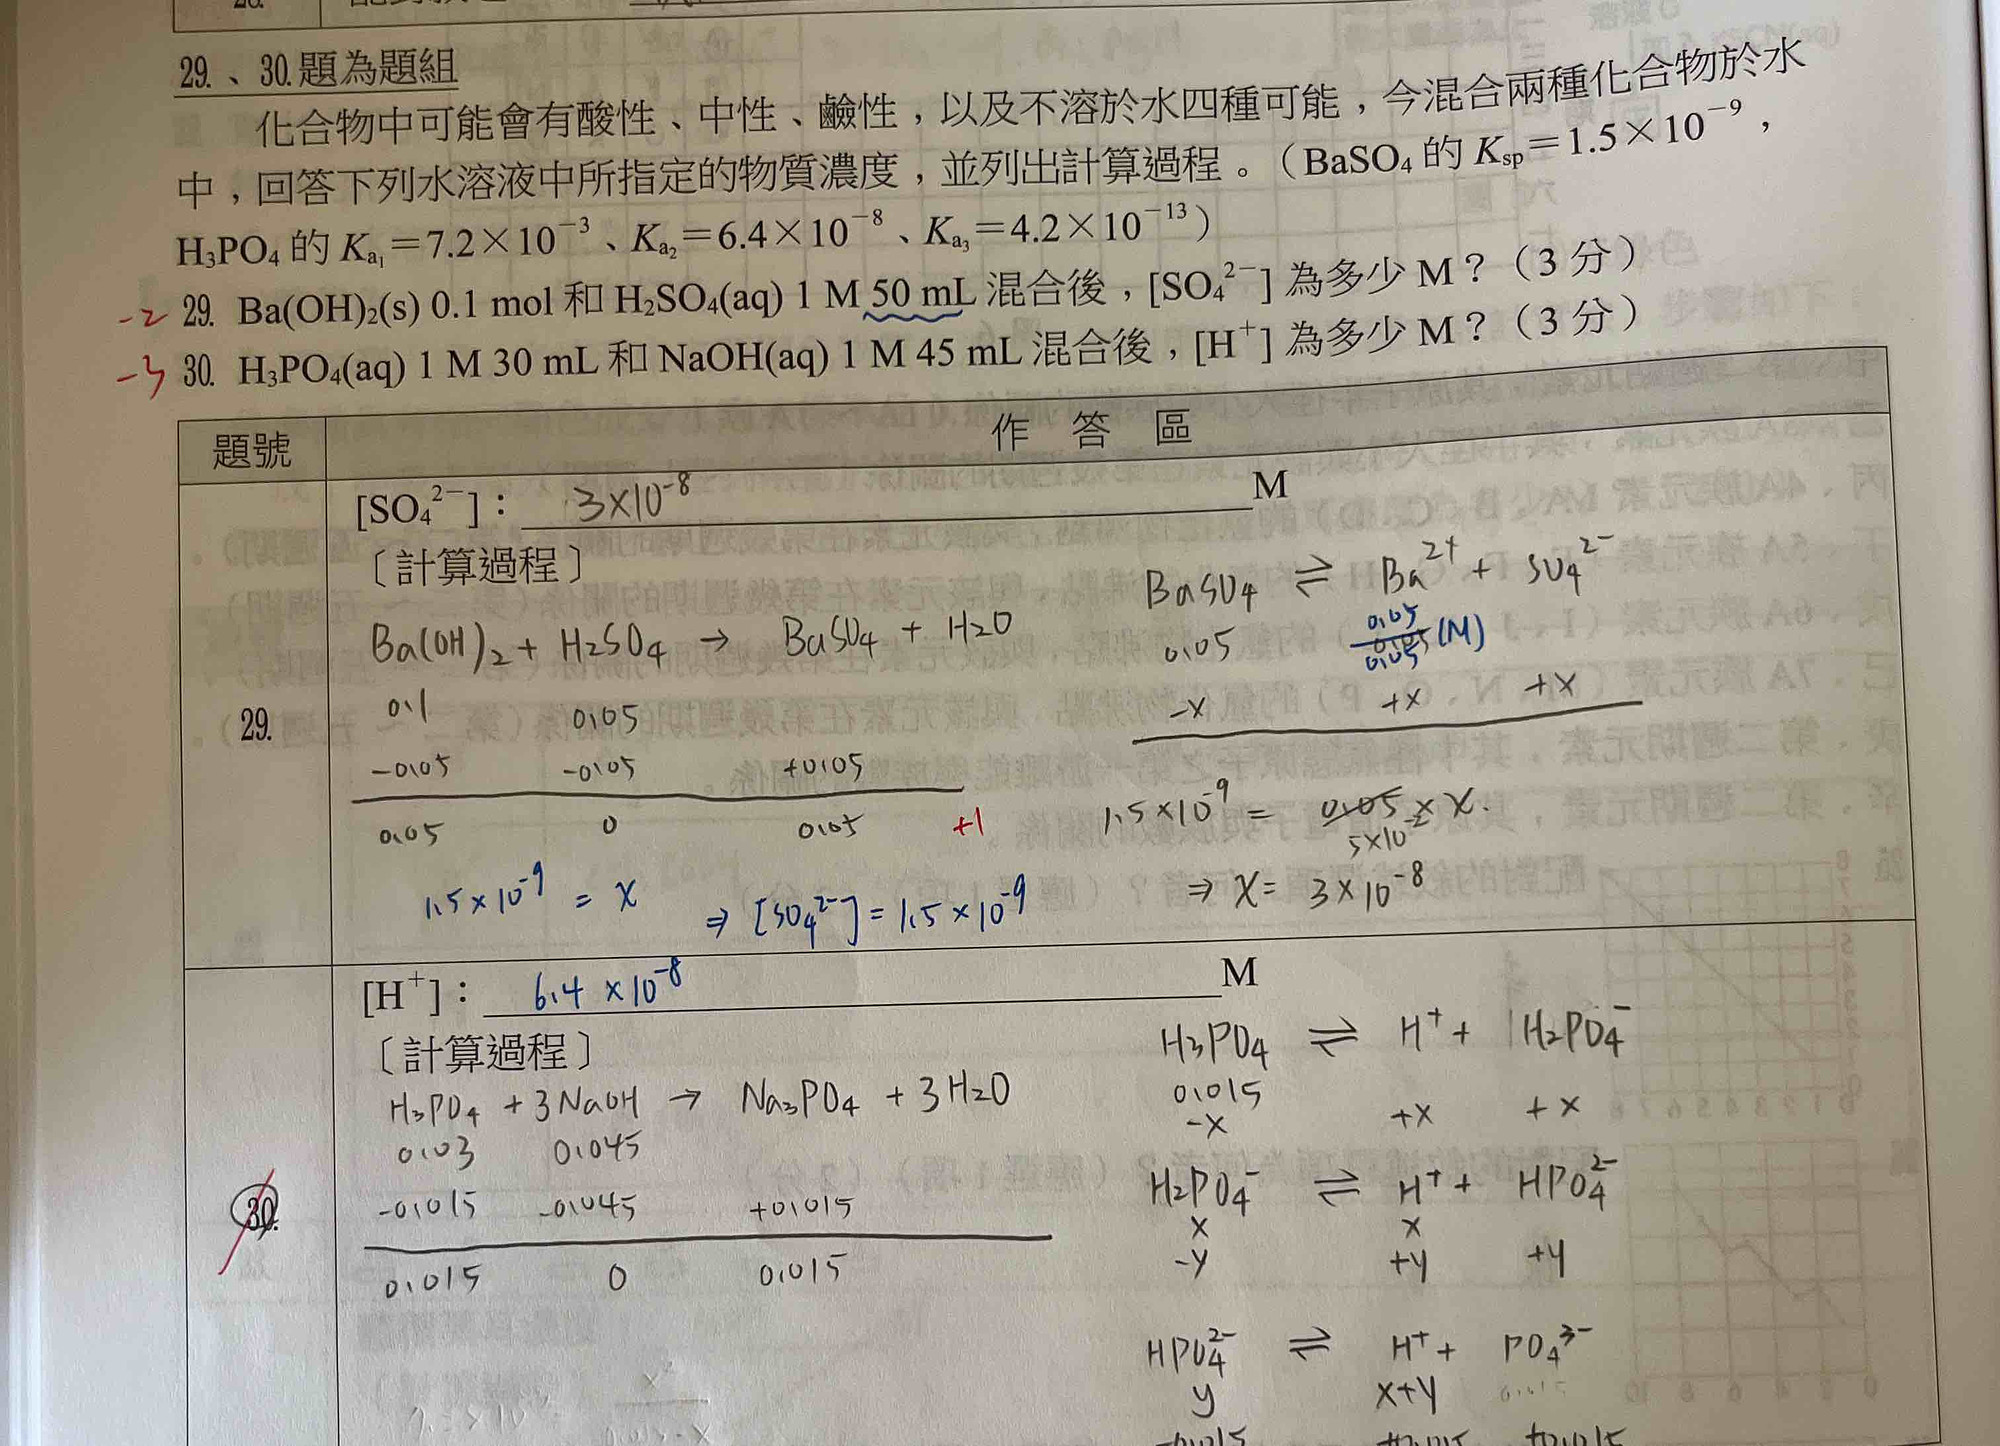 29.、30.題為題組
化合物中可能會有酸性、中性、鹼性，以及不溶於水四種可能，今混合兩種化合物於水
中，回答下列水溶液中所指定的物質濃度，並列出計算過程。（BaSO₄ 的 Ksp＝1.5×10⁻⁹，
H₃PO₄ 的 Ka₁＝7.2×10⁻³、Ka₂＝6.4×10⁻⁸、Ka₃＝4.2×10⁻¹³）
-2 29. Ba(OH)₂(s) 0.1 mol 和 H₂SO₄(aq) 1 M 50 mL 混合後，[SO₄²⁻] 為多少 M？（3 分）
-3 30. H₃PO₄(aq) 1 M 30 mL 和 NaOH(aq) 1 M 45 mL 混合後，[H⁺] 為多少 M？（3 分）
題號 作答區
29.
[SO₄²⁻]：3×10⁻⁸ M
〔計算過程〕
Ba(OH)₂ + H₂SO₄ → BaSO₄ + H₂O
0.1 0.05
-0.05 -0.05 +0.05
0.05 0 0.05 +1
1.5×10⁻⁹ = x ⇒ [SO₄²⁻] = 1.5×10⁻⁹
BaSO₄ ⇌ Ba²⁺ + SO₄²⁻
0.05 0.05/0.05 (M)
-x +x +x
1.5×10⁻⁹ = 0.05 × x.
5×10⁻²
⇒ x = 3×10⁻⁸
30.
[H⁺]：6.4×10⁻⁸ M
〔計算過程〕
H₃PO₄ + 3NaOH → Na₃PO₄ + 3H₂O
0.03 0.045
-0.015 -0.045 +0.015
0.015 0 0.015
H₃PO₄ ⇌ H⁺ + H₂PO₄⁻
0.015
-x +x +x
H₂PO₄⁻ ⇌ H⁺ + HPO₄²⁻
x x
-y +y +y
HPO₄²⁻ ⇌ H⁺ + PO₄³⁻
y x+y 0.015
-0.015 +0.015 +0.015